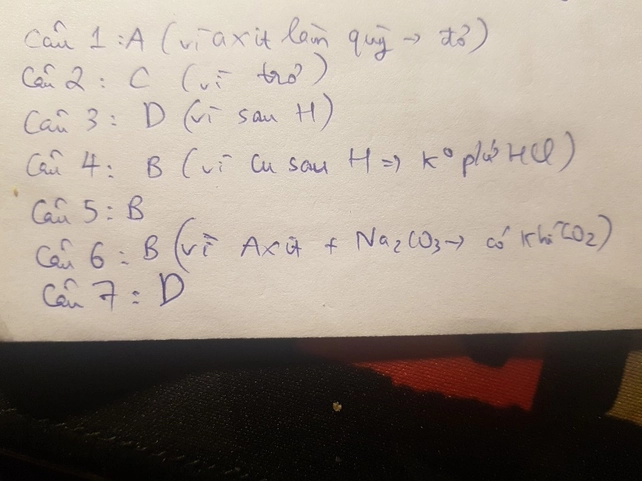 Câu 1 : A (vì axit làm quỳ → đỏ)
Câu 2 : C (vì trơ)
Câu 3 : D (vì sau H)
Câu 4 : B (vì Cu sau H => k° pứ HCl)
Câu 5 : B
Câu 6 : B (vì Axit + Na2CO3 → có khí CO2)
Câu 7 : D